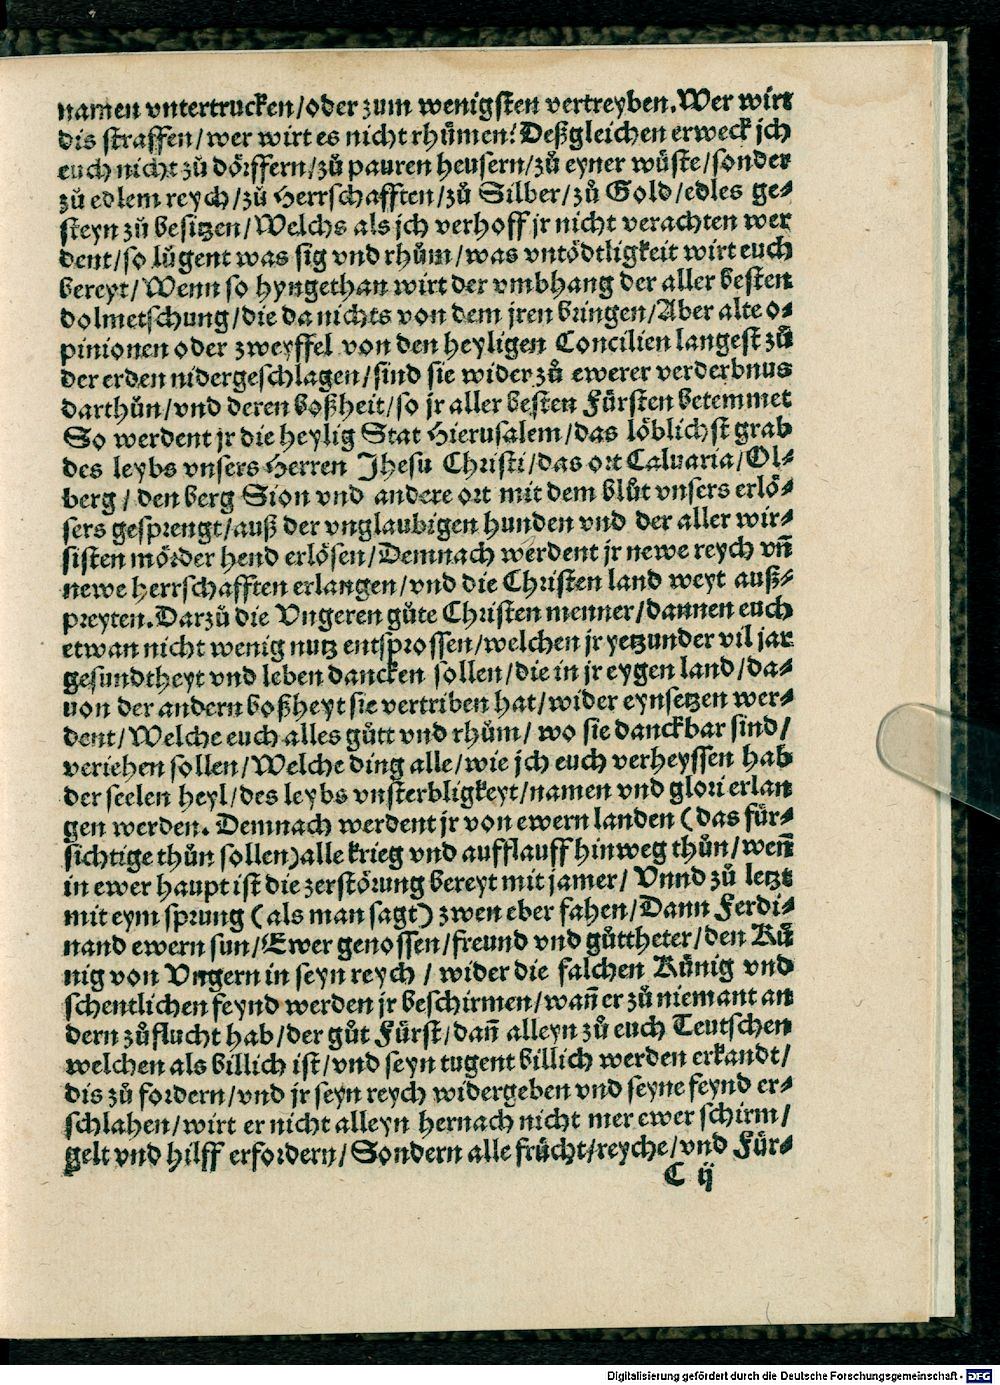 namen vntertrucken/oder zum wenigsten vertreyben. Wer wirt
dis straffen/wer wirt es nicht rhuͤmen? Deßgleichen erweck jch
euch nicht zuͦ doͤrffern/zuͦ pauren heusern/zuͦ eyner wuͤste/sonder
zuͦ edlem reych/zuͦ Herrschafften/zuͦ Silber/zuͦ Gold/edles ge⸗
steyn zuͦ besitzen/Welchs als jch verhoff jr nicht verachten wer
dent/so luͦgent was sig vnd rhuͦm/was vntoͤdtligkeit wirt euch
bereyt/Wenn so hyngethan wirt der vmbhang der aller besten
dolmetschung/die da nichts von dem jren bringen/Aber alte o⸗
pinionen oder zweyffel von den heyligen Concilien langest zuͦ
der erden nidergeschlagen/sind sie wider zuͦ ewerer verderbnus
darthuͦn/vnd deren boßheit/so jr aller besten Fuͤrsten betemmet
So werdent jr die heylig Stat Hierusalem/das loͤblichst grab
des leybs vnsers Herren Jhesu Christi/das ort Caluaria/Ol⸗
berg/den berg Sion vnd andere ort mit dem bluͦt vnsers erloͤ⸗
sers gesprengt/auß der vnglaubigen hunden vnd der aller wir⸗
sisten moͤrder hend erloͤsen/Demnach werdent jr newe reych vñ
newe herrschafften erlangen/vnd die Christen land weyt auß⸗
preyten. Darzuͦ die Vngeren guͦte Christen menner/dannen euch
etwan nicht wenig nutz entsprossen/welchen jr yetzunder vil jar
gesundtheyt vnd leben dancken sollen/die in jr eygen land/da⸗
uon der andern boßheyt sie vertriben hat/wider eynsetzen wer⸗
dent/Welche euch alles guͦtt vnd rhuͦm/wo sie danckbar sind/
veriehen sollen/Welche ding alle/wie jch euch verheyssen hab
der seelen heyl/des leybs vnsterbligkeyt/namen vnd glori erlan
gen werden. Demnach werdent jr von ewern landen (das fuͤr⸗
sichtige thuͦn sollen) alle krieg vnd aufflauff hinweg thuͦn/weñ
in ewer haupt ist die zerstoͤrung bereyt mit jamer/Vnnd zuͦ letzt
mit eym sprung (als man sagt) zwen eber fahen/Dann Ferdi⸗
nand ewern sun/Ewer genossen/freund vnd guͦttheter/den Kuͤ
nig von Vngern in seyn reych/wider die falchen Kuͤnig vnd
schentlichen feynd werden jr beschirmen/wañ er zuͦ niemant an
dern zuͦflucht hab/der guͦt Fuͤrst/dañ alleyn zuͦ euch Teutschen
welchen als billich ist/vnd seyn tugent billich werden erkandt/
dis zuͦ fordern/vnd jr seyn reych widergeben vnd seyne feynd er⸗
schlahen/wirt er nicht alleyn hernach nicht mer ewer schirm/
gelt vnd hilff erfordern/Sondern alle fruͤcht/reyche/vnd Fuͤr⸗
C ij
Digitalisierung gefördert durch die Deutsche Forschungsgemeinschaft - DFG